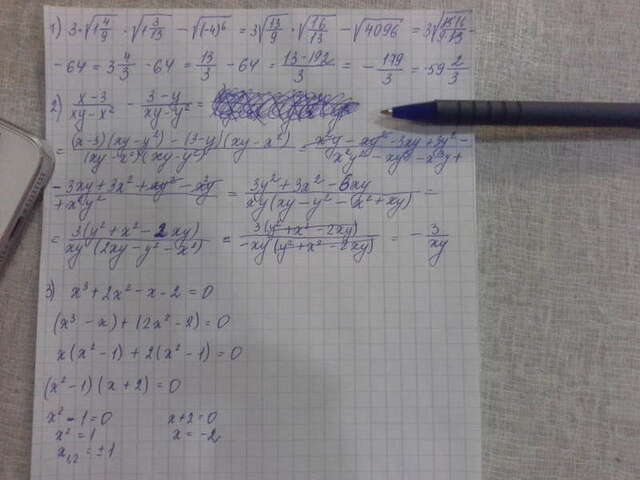 1) 3·√1 4/9 · √1 3/13 − √(−4)⁶ = 3√13/9 · √16/13 − √4096 = 3√13·16/9·13 −
− 64 = 3 4/3 − 64 = 13/3 − 64 = 13−192/3 = − 179/3 = −59 2/3
2) x−3/xy−x² − 3−y/xy−y² =
= (x−3)(xy−y²) − (3−y)(xy−x²)/(xy−x²)(xy−y²) = x²y − xy² − 3xy + 3y² −/x²y² − xy³ − x³y +
− 3xy + 3x² + xy² − x²y/+ x²y² = 3y² + 3x² − 6xy/xy(xy − y² − x² + xy) =
= 3(y² + x² − 2xy)/xy(2xy − y² − x²) = 3(y² + x² − 2xy)/−xy(y² + x² − 2xy) = − 3/xy
3) x³ + 2x² − x − 2 = 0
(x³ − x) + (2x² − 2) = 0
x(x² − 1) + 2(x² − 1) = 0
(x² − 1)(x + 2) = 0
x² − 1 = 0 x + 2 = 0
x² = 1 x = −2
x₁,₂ = ±1